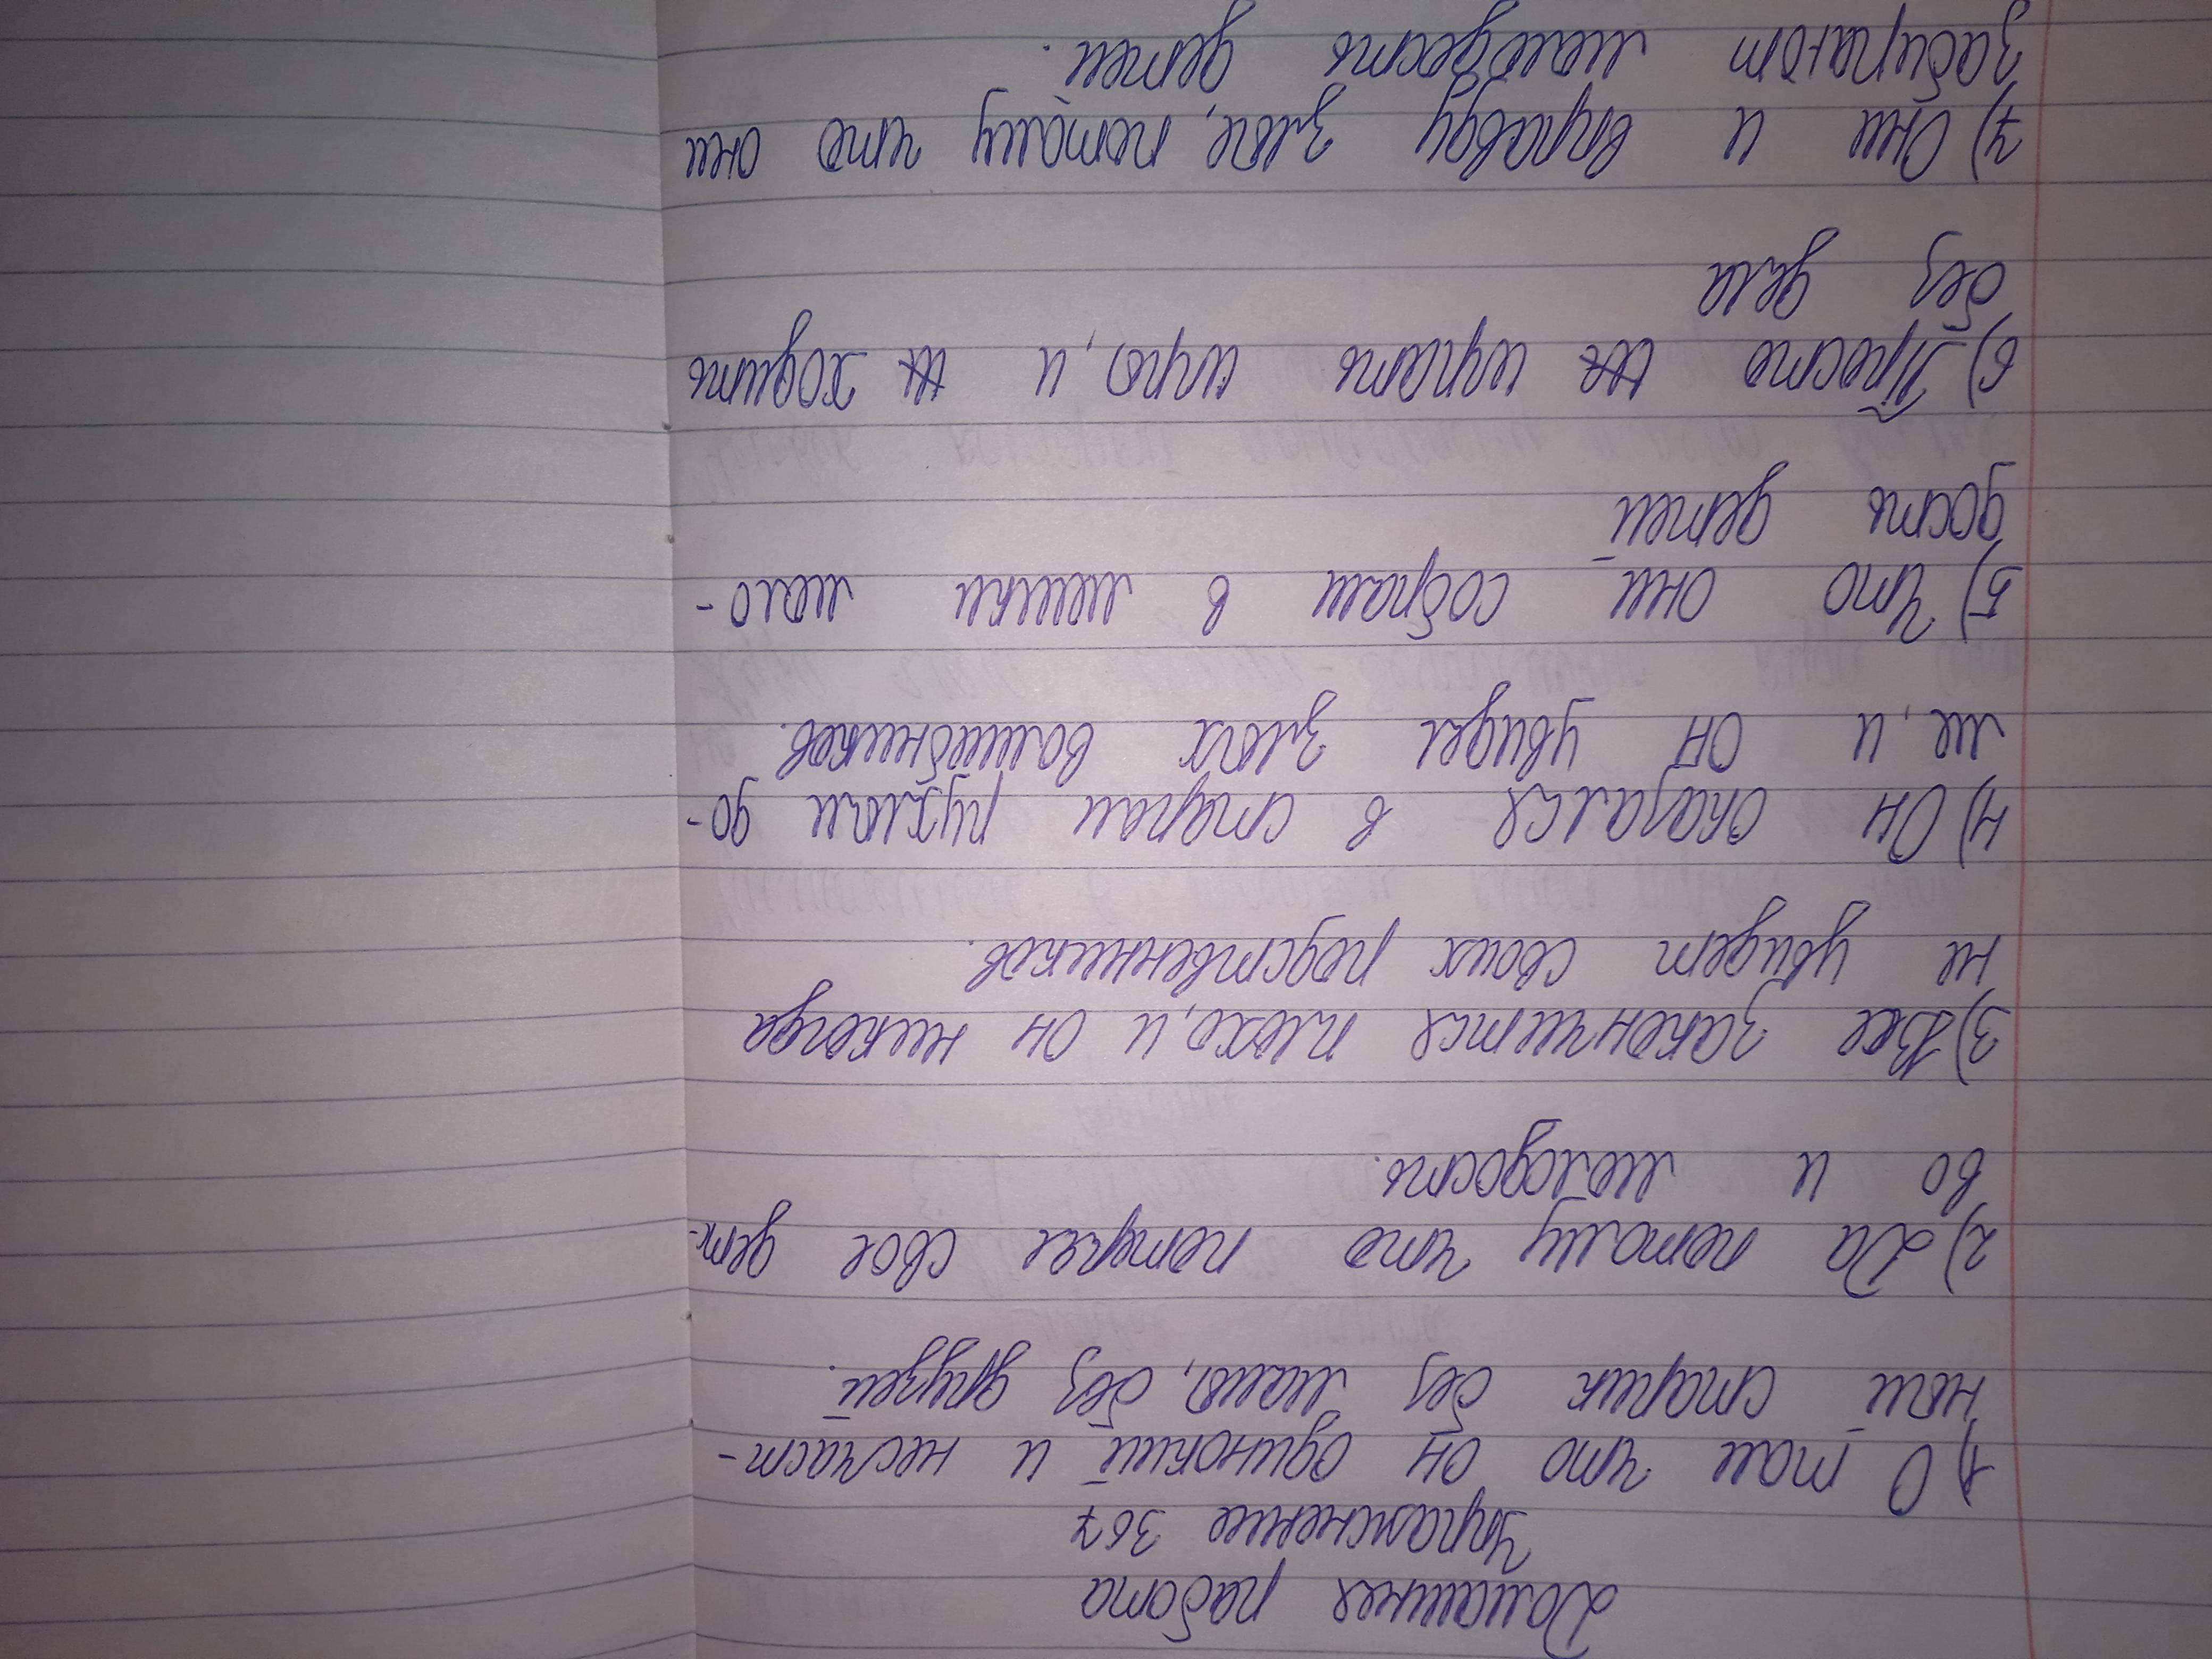 Домашняя работа
Упражнение 367
1) О том что он одинокий и несчаст-
ный старик без мамы, без друзей.
2) Да потому что потерял свое детс-
во и молодость.
3) Все закончится плохо, и он никогда
не увидет своих родственников.
4) Он оказался в старом рухлом до-
ме, и он увидел злых волшебников.
5) Что они собрали в мешки моло-
дость детей
6) Просто играть игры, и ходить
без дела
7) Они и вправду злые, потому что они
забирают молодость детей.